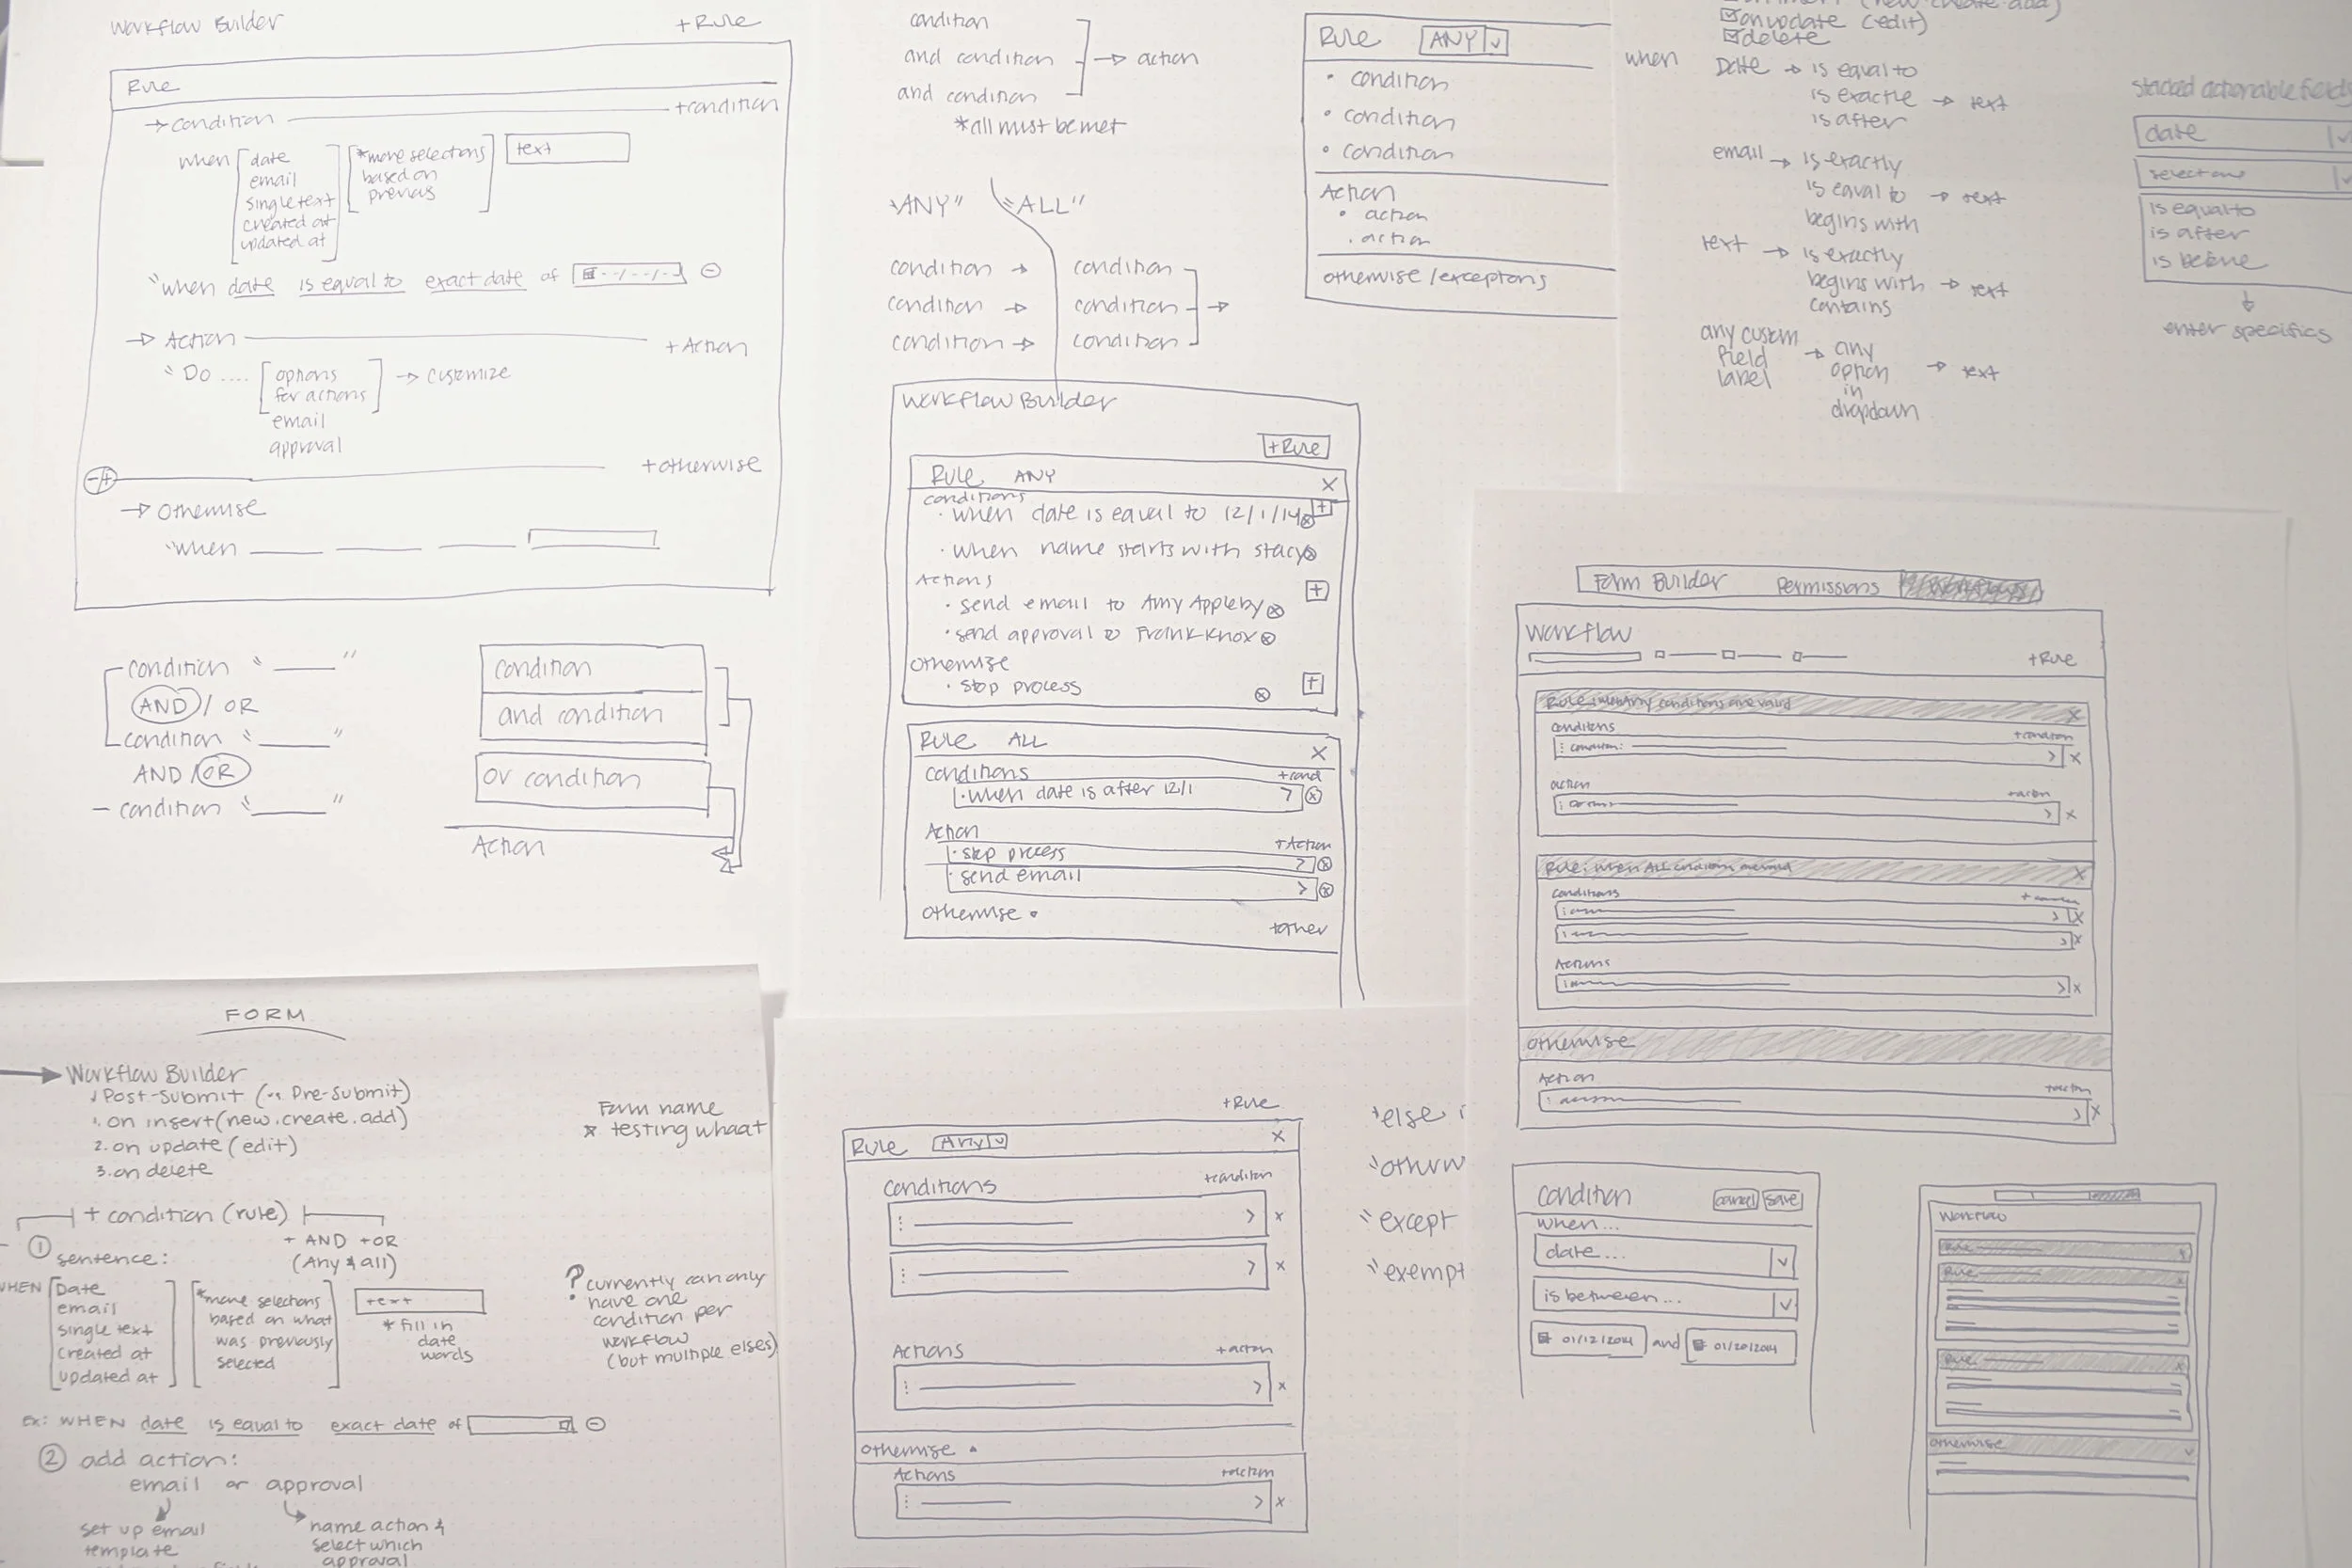 Workflow Builder
+Rule
Rule
→ Condition
+condition
when
date
email
single text
created at
updated at
*more selections
based on
text
"when date is equal to exact date of --/--/--
→ Action
+Action
"Do ....
options
for actions
email
approval
→ customize
+otherwise
→ Otherwise
"when
condition "_____"
AND / OR
condition "_____"
AND / OR
- condition "_____"
condition
and condition
or condition
Action
condition
and condition → action
and condition
*all must be met
"ANY" "ALL"
condition → condition
condition → condition →
condition → condition
Workflow Builder
+Rule
Rule ANY X
conditions
+
• when date is equal to 12/1/14
• when name starts with stacy
Actions
+
• send email to Amy Appleby
• send approval to Frank Knox
otherwise
• stop process
+
Rule ALL X
Conditions +cond
• when date is after 12/1 >
Action +Action
• stop process >
• send email >
otherwise •
+other
Rule ANY
• condition
• condition
• condition
Action
• action
• action
otherwise / exceptions
on update (edit)
delete
when
Date → is equal to
is exactle → text
is after
email → is exactly
is equal to → text
begins with
text → is exactly
begins with → text
contains
any custom
field
label
→ any
option
in
dropdown
→ text
stacked actionable fields
date
select one
is equal to
is after
is before
enter specifics
Form Builder Permissions
Workflow
+Rule
Rule: when Any conditions are valid X
conditions
+condition
condition: > X
action
+action
> X
Rule: when ALL conditions X
conditions
> X
> X
Actions
> X
otherwise
Action
+action
> X
Condition cancel save
when...
date...
is between...
01/12/2014 and 01/20/2014
Workflow
Rule
Rule
Rule
otherwise
FORM
→ Workflow Builder
Post-Submit (vs. Pre-Submit)
1. on insert (new. create. add)
2. on update (edit)
3. on delete
Form name
* testing whaat
+ condition (rule)
+ AND +OR
(Any & all)
① sentence:
WHEN
Date
email
single text
created at
updated at
*more selections
based on what
was previously
selected
text
* fill in
date
words
? currently can only
have one
condition per
workflow
(but multiple elses)
Ex: WHEN date is equal to exact date of
② add action:
email or approval
set up email
template
name action &
select which
approval
+Rule
Rule Any X
Conditions
+condition
> x
> x
Actions
+action
> x
otherwise •
Actions
+action
> x
"else i
"otherw
"except
"exempt